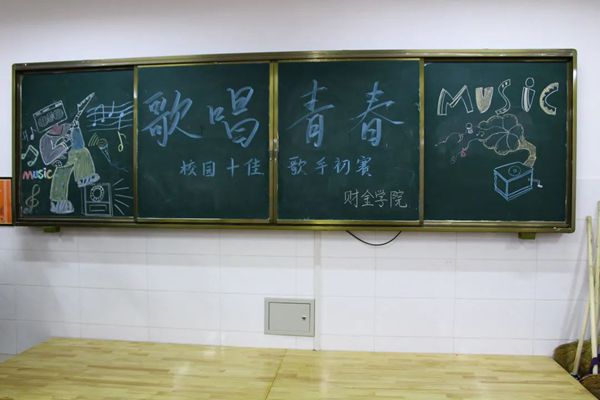 歌唱青春
校园十佳 歌手初赛
财金学院
MUSIC
MUSIC